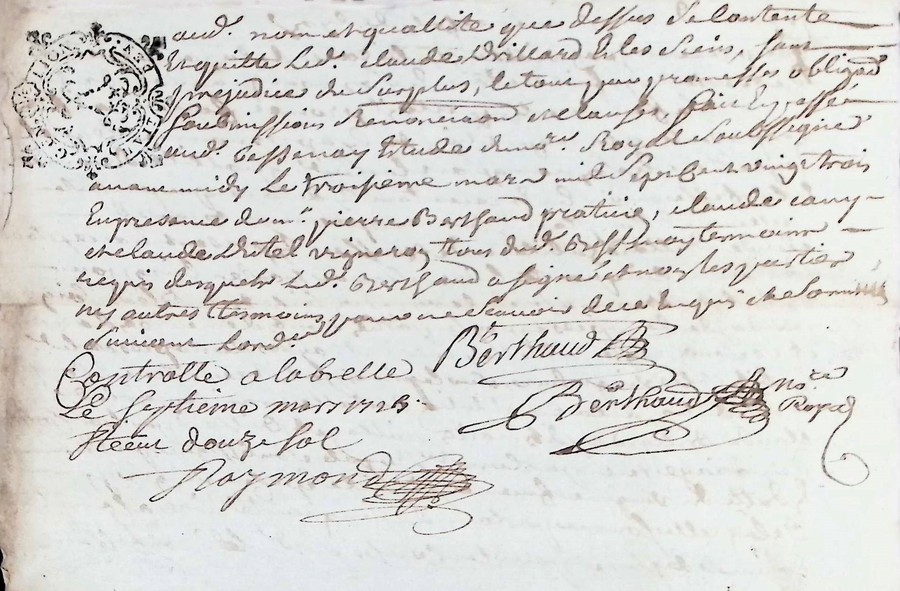 aud. nom et qualitté que dessus se contente
Et quitte Led. claude Drillard Et les siens, sans
prejudice du surplus, le tout par promesses obligaõn
soubmissions Renonciaõn et clauses, fait Et passé
aud. Et Etude du nre. Royal soubssigné
avant midy Le troisieme mars mil sept cent vingt trois
En presence de mr. pierre Berthaud praticie, claude
et claude vigneron tous dud. tesmoins
requis desquels Led. Berthaud a signé et non les parties
ny autres tesmoins pour ne scavoir de ce Enquis et sommés
suivant Lord.ce
Controllé a labrelle Berthaud
Le septieme mars 1723. Berthaud Nre
Receu douze sol Royal
Raymond